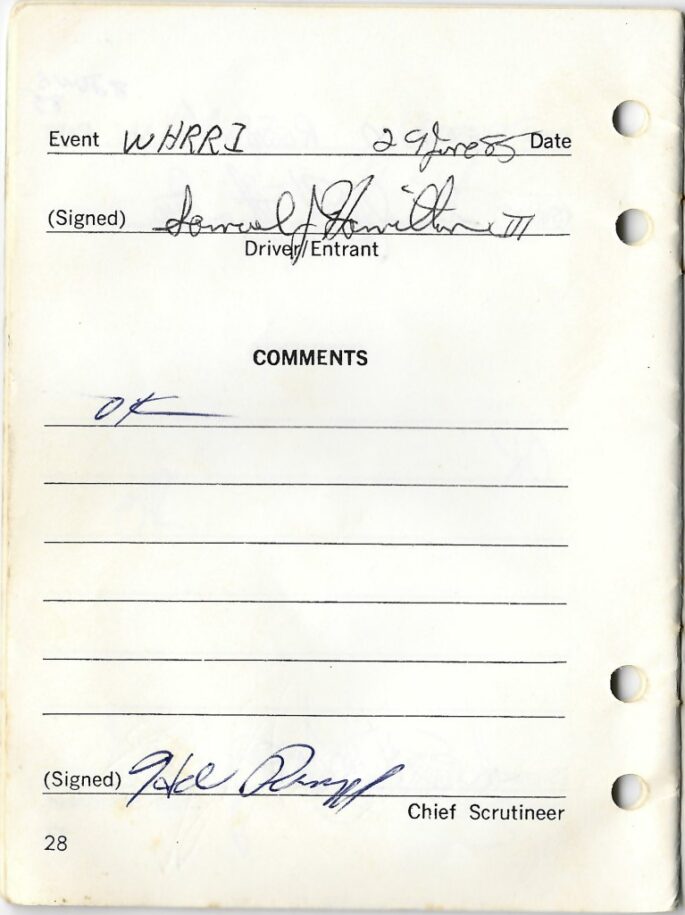 Event WHRRI 29 June 85 Date
(Signed) Samuel J Hamilton III
Driver/Entrant
COMMENTS
OK
(Signed) Hal
Chief Scrutineer
28